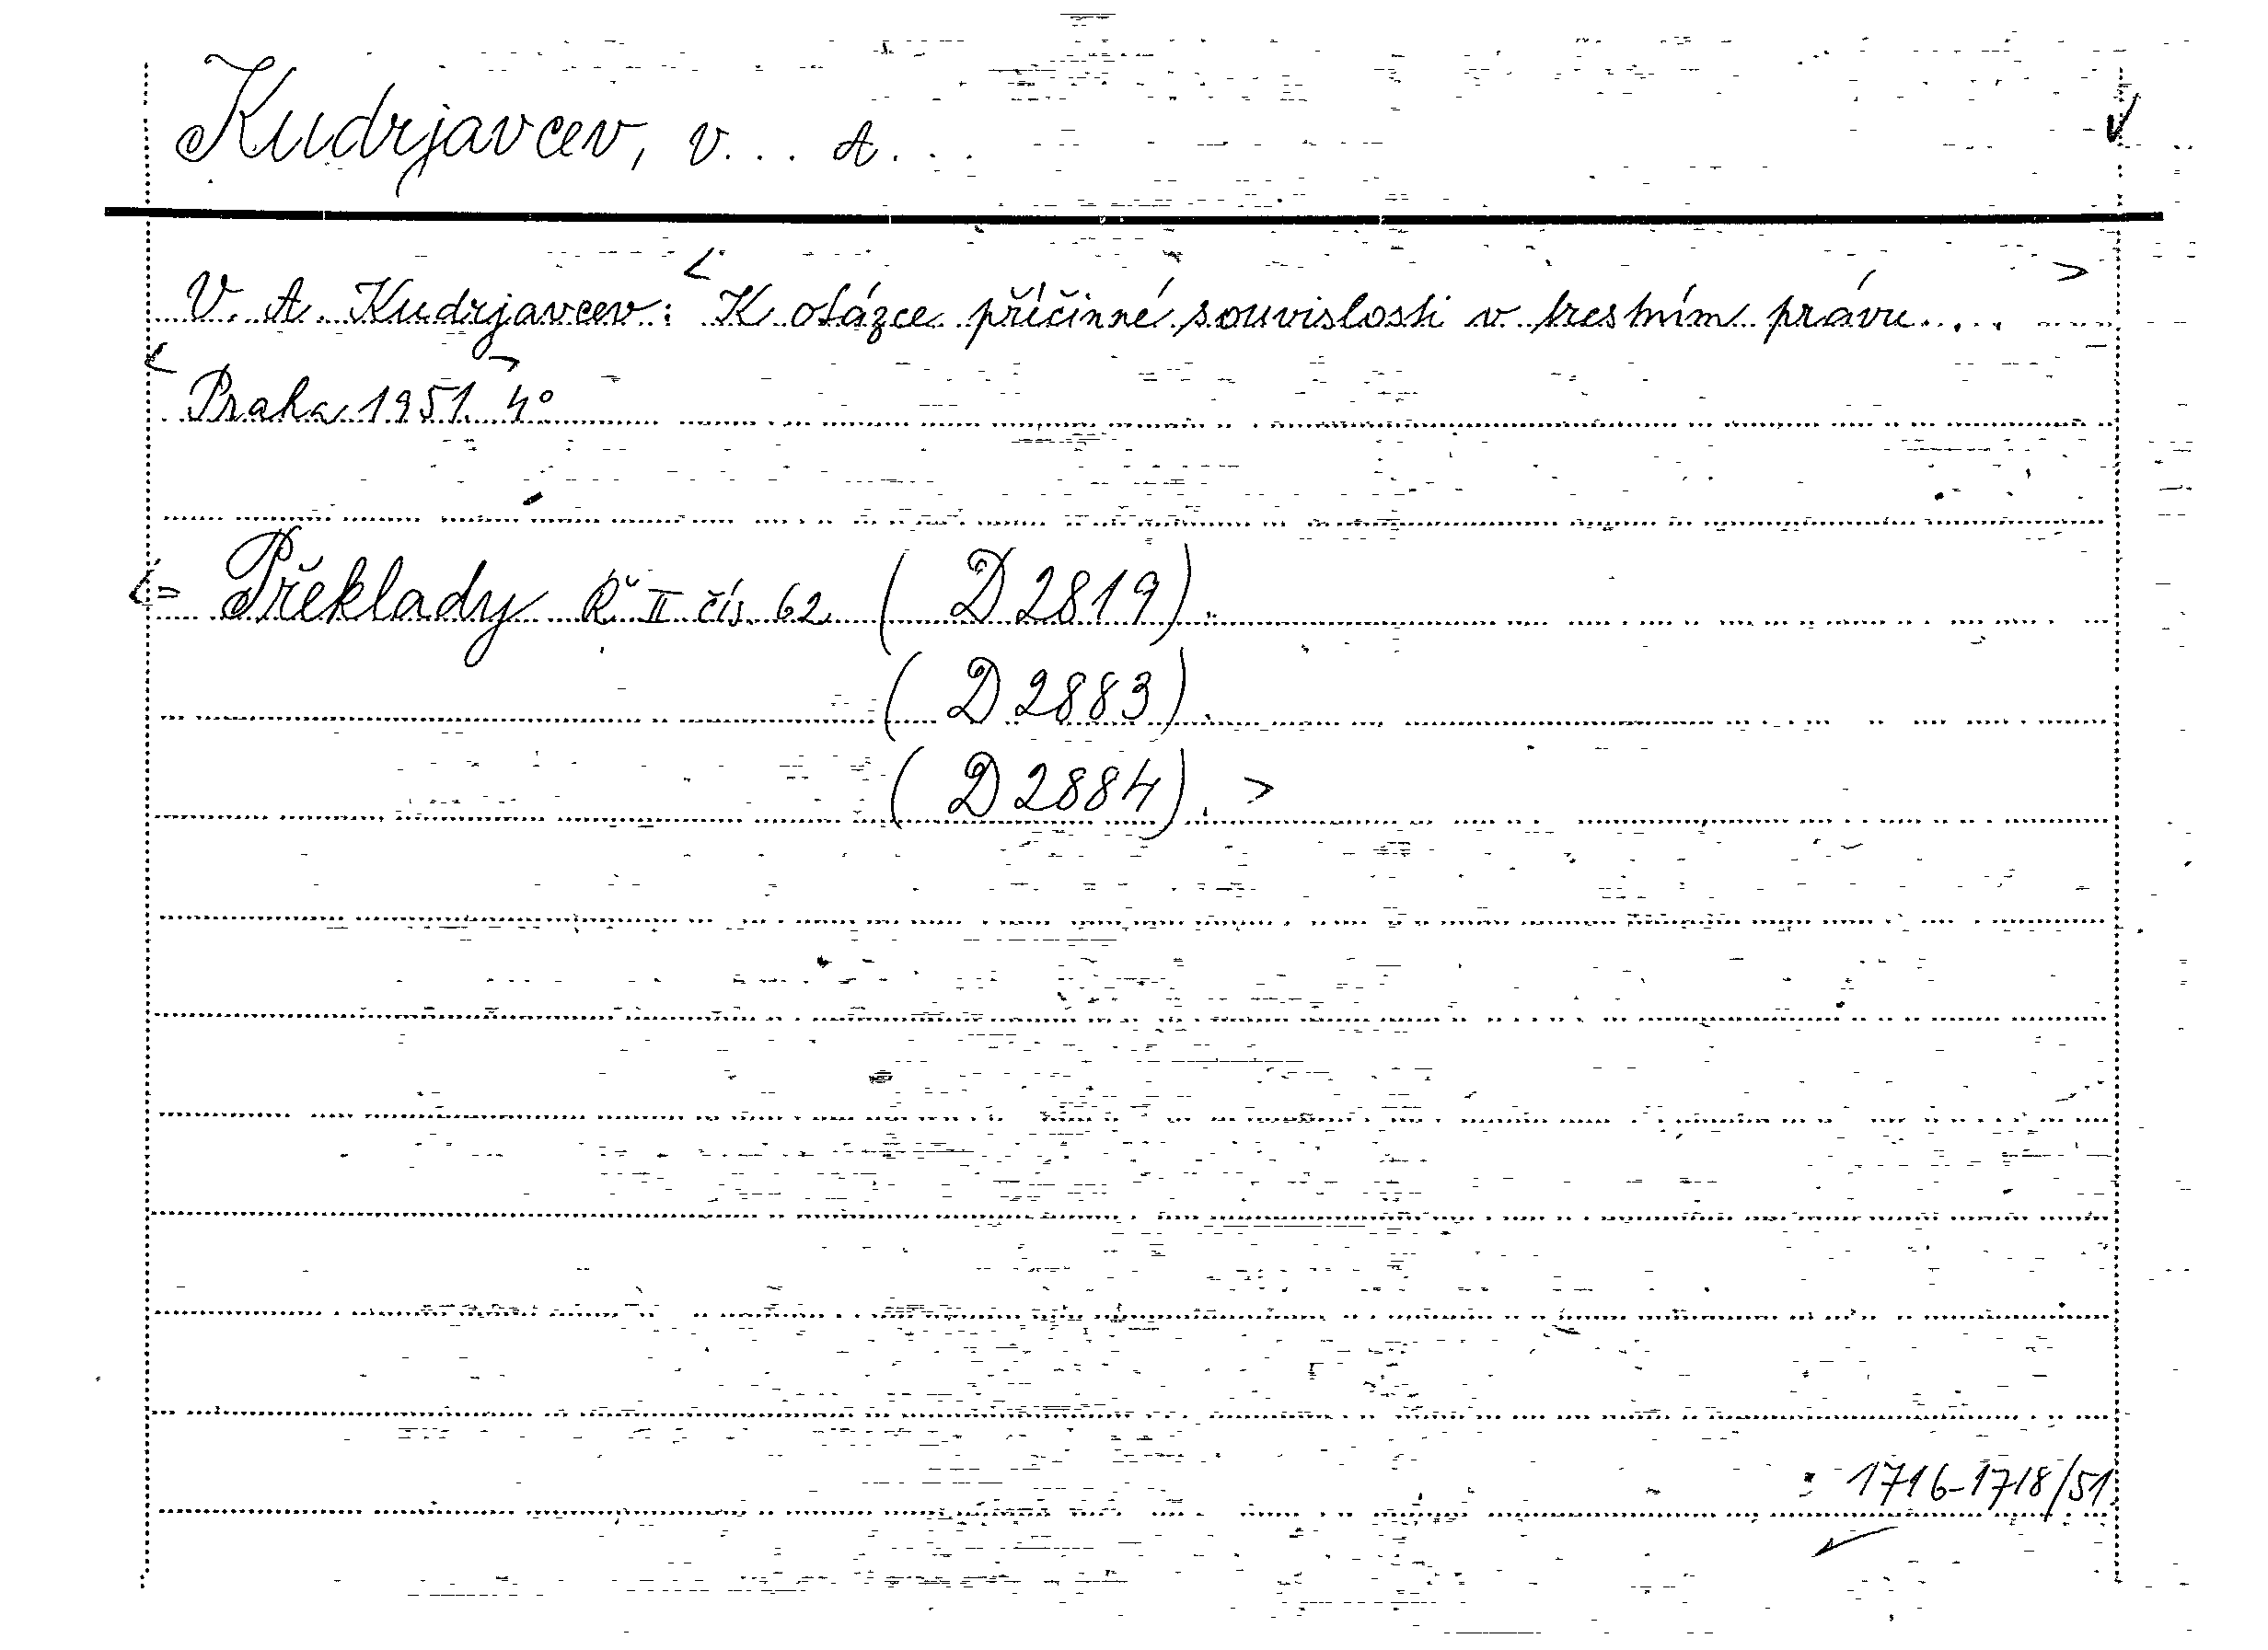 Kudrjavcev, V... A...
V. A. Kudrjavcev: <K otázce příčinné souvislosti v trestním právu....>
<Praha 1951.> 4°
<= Překlady Ř. II čís. 62 ( D 2819).
( D 2883).
( D 2884). >
: 1716-1718/51.